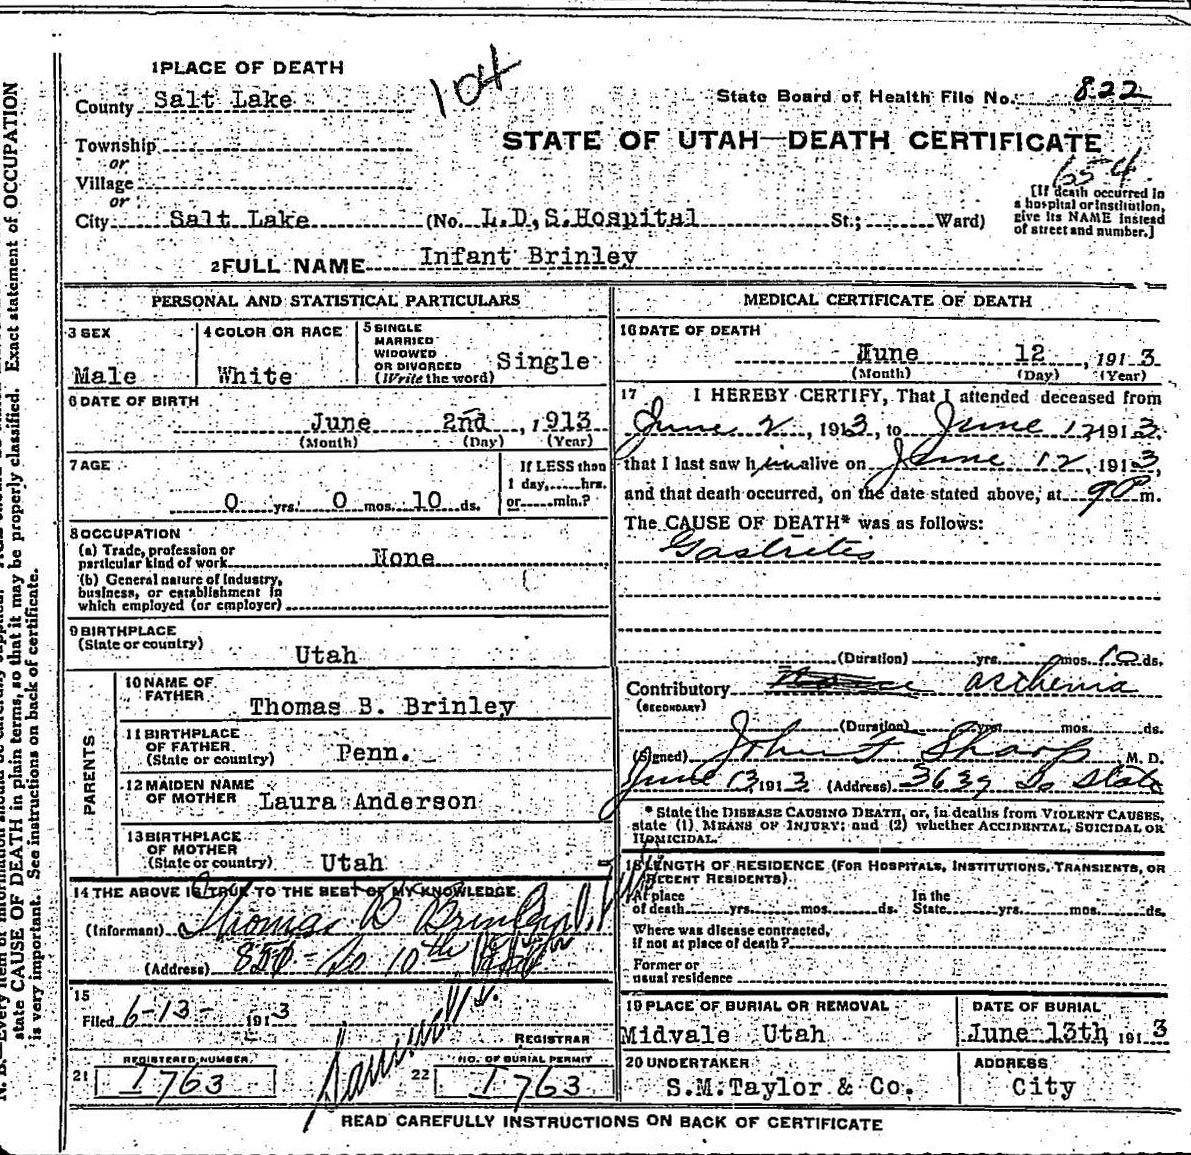 1 PLACE OF DEATH
104
County Salt Lake
State Board of Health File No. 822
Township
STATE OF UTAH—DEATH CERTIFICATE
or
654
Village
or
[If death occurred in a hospital or institution, give its NAME instead of street and number.]
City Salt Lake (No. L.D,S.Hospital St.; Ward)
2 FULL NAME Infant Brinley
PERSONAL AND STATISTICAL PARTICULARS
3 SEX
Male
4 COLOR OR RACE
White
5 SINGLE
MARRIED
WIDOWED
OR DIVORCED
(Write the word)
Single
6 DATE OF BIRTH
June 2nd, 1913
(Month) (Day) (Year)
7 AGE
0 yrs. 0 mos. 10 ds.
If LESS than
1 day, hrs.
or min.?
8 OCCUPATION
(a) Trade, profession or
particular kind of work None
(b) General nature of Industry,
business, or establishment in
which employed (or employer)
9 BIRTHPLACE
(State or country)
Utah
PARENTS
10 NAME OF
FATHER
Thomas B. Brinley
11 BIRTHPLACE
OF FATHER
(State or country)
Penn.
12 MAIDEN NAME
OF MOTHER
Laura Anderson
13 BIRTHPLACE
OF MOTHER
(State or country)
Utah
14 THE ABOVE IS TRUE TO THE BEST OF MY KNOWLEDGE
(Informant) Thomas B Brinley
(Address) 850 - So 10th
15
Filed 6-13- 1913
REGISTRAR
21 REGISTERED NUMBER
I763
22 NO. OF BURIAL PERMIT
I763
MEDICAL CERTIFICATE OF DEATH
16 DATE OF DEATH
June 12, 1913
(Month) (Day) (Year)
17 I HEREBY CERTIFY, That I attended deceased from
June 2, 1913, to June 12 1913,
that I last saw him alive on June 12, 1913,
and that death occurred, on the date stated above, at 9 P m.
The CAUSE OF DEATH* was as follows:
Gastrites
(Duration) yrs. mos. 10 ds.
Contributory asthenia
(SECONDARY)
(Duration) yrs. mos. ds.
(Signed) John F Sharp M. D.
June 13 1913 (Address) 3639 So State
* State the DISEASE CAUSING DEATH, or, in deaths from VIOLENT CAUSES,
state (1) MEANS OF INJURY; and (2) whether ACCIDENTAL, SUICIDAL OR
HOMICIDAL.
18 LENGTH OF RESIDENCE (FOR HOSPITALS, INSTITUTIONS, TRANSIENTS, OR
RECENT RESIDENTS)
At place
of death yrs. mos. ds.
In the
State yrs. mos. ds.
Where was disease contracted,
if not at place of death?
Former or
usual residence
19 PLACE OF BURIAL OR REMOVAL
Midvale Utah
DATE OF BURIAL
June 13th 1913
20 UNDERTAKER
S.M.Taylor & Co.
ADDRESS
City
READ CAREFULLY INSTRUCTIONS ON BACK OF CERTIFICATE
state CAUSE OF DEATH in plain terms, so that it may be properly classified. Exact statement of OCCUPATION
is very important. See instructions on back of certificate.